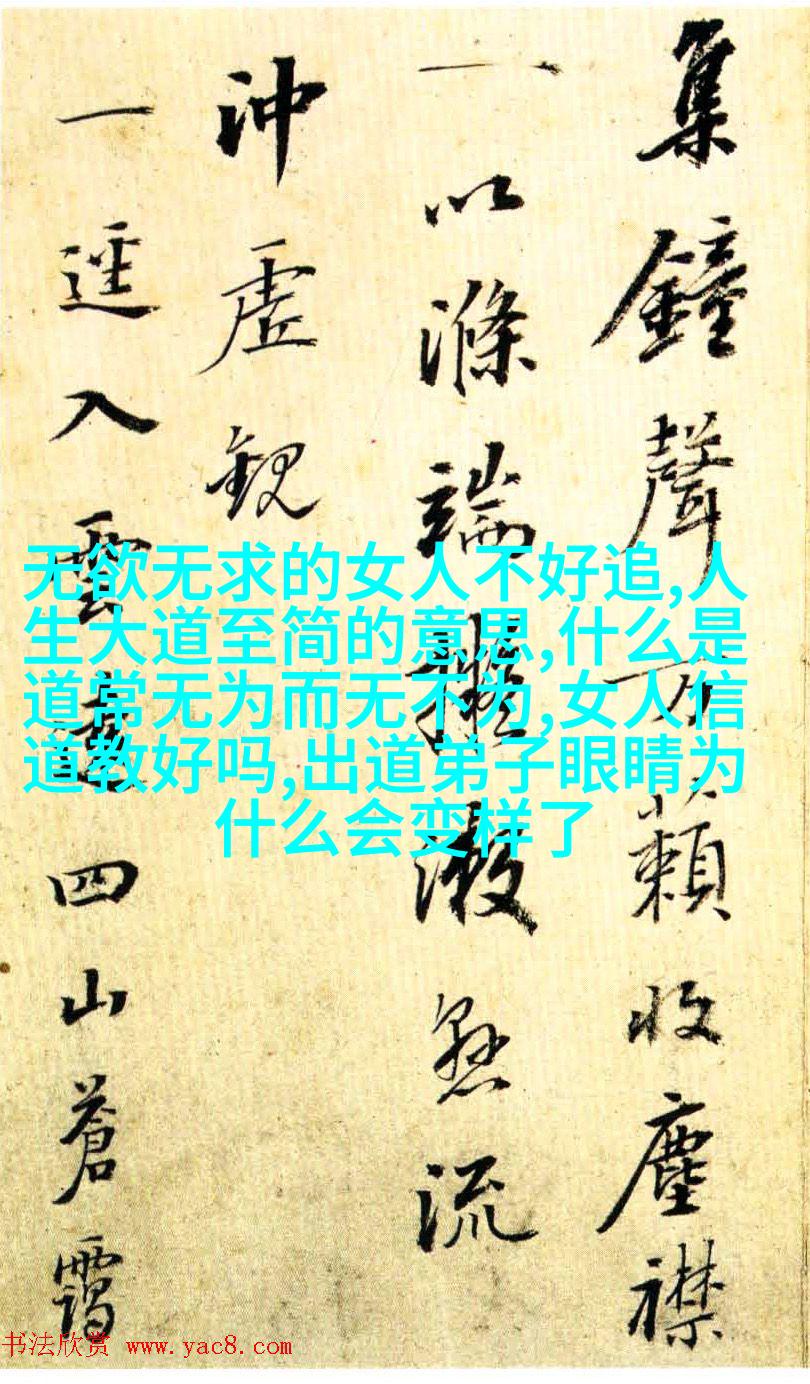 集鐘聲万籟收塵襟
一以滌端漱流
沖虛觀
一逕入雲四山蒼靄
无欲无求的女人不好追,人
生大道至简的意思,什么是
道常无为而无不为,女人信
道教好吗,出道弟子眼睛为
什么会变样了
书法欣赏 www.yac8.com